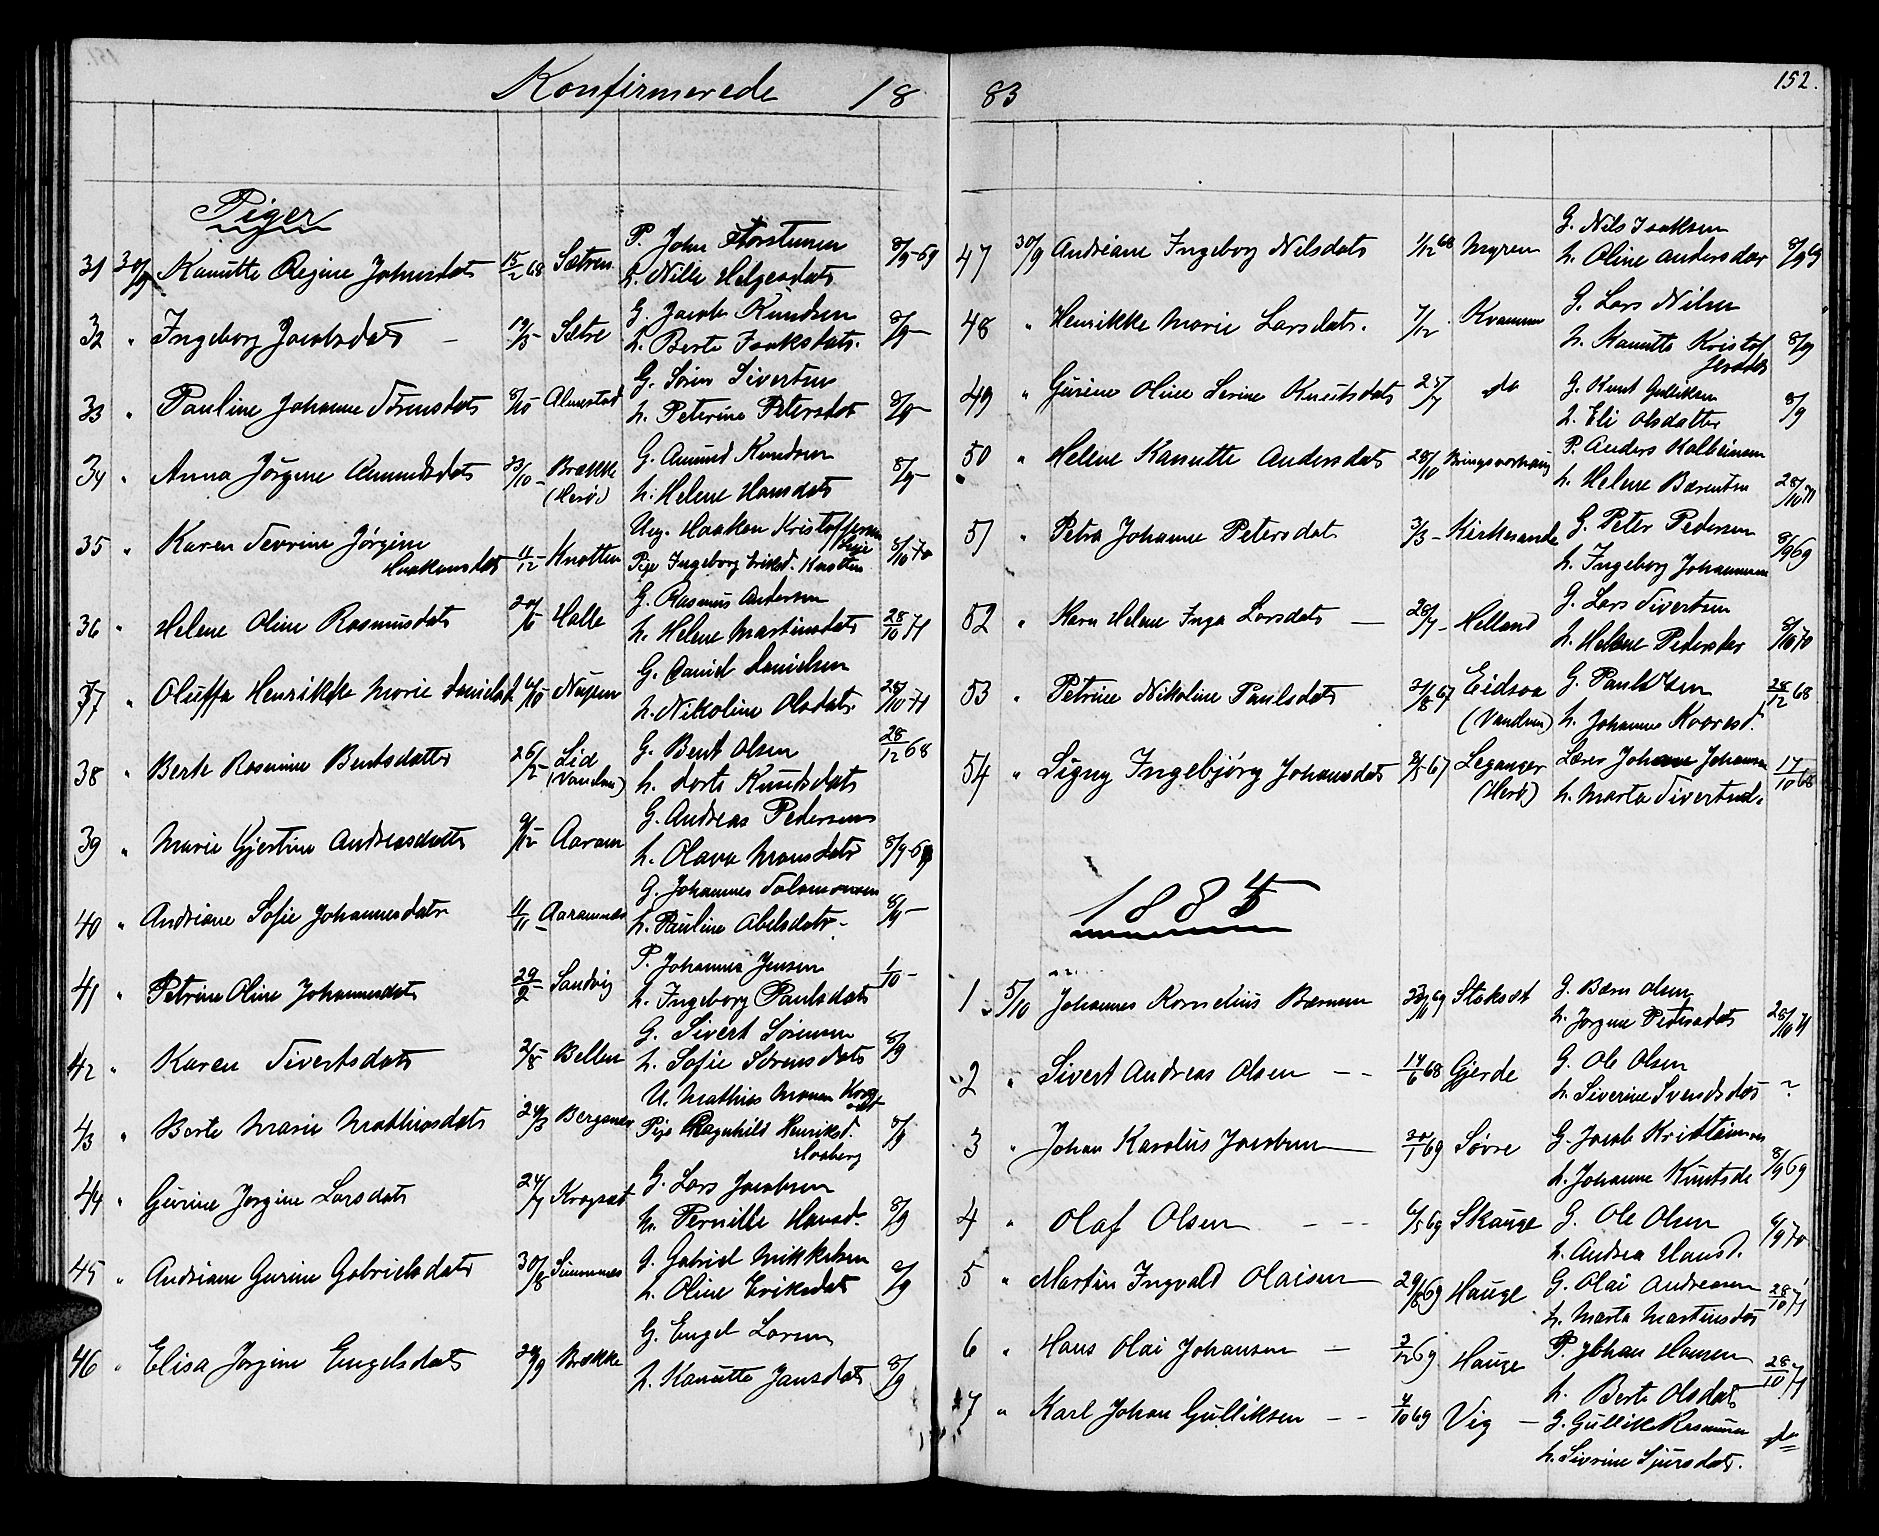 152.
Konfirmerede 18 83
Piger
31 30/9 Kanutte Regine Johnsdatr 15/2 68 Sætren P. John Thorstensen 8/9-69
h. Nille Helgesdatr
32 " Ingeborg Jacobsdatr - 19/5 Sætre G. Jacob Knudsen 8/9-
h. Berte Isaksdatr.
33 " Pauline Johanne Sørensdatr 8/10 Almestad G. Søren Sivertsen 8/9-
h. Peterine Petersdatr
34 " Anna Jørgine Amundsdatr 23/10- Brække G. Amund Knudsen 8/9-
(Herø) h. Helene Hansdatr
35 " Karen Severine Jørgine Ung. Haakon Kristoffersen
Haakonsdatr 4/12 Knotten Pige Ingeborg Eriksd. Knotten 8/10 70
36 " Helene Oline Rasmusdatr 20/6 Halle G. Rasmus Andersen
h. Helene Martinsdatr 28/10 71
37 " Oluffa Henrikke Marie Danielsd 16/10 Nupen G. Daniel Danielsen
h. Nikoline Olsdatr 28/10 71
38 " Berte Rasmine Bentsdatter 26/12- Lid G. Bent Olsen 28/12 68
(Vandven) h. Dorte Knutsdatr
39 " Marie Gjertine Andreasdatter 9/12- Aaram G. Andreas Pedersen
h. Olava Monsdatr 8/9-69
40 " Andriane Sofie Johannesdatr 11/11- Aaramnes G. Johannes Salamonsen
h. Pauline Abelsdatr- 8/9-
41 " Petrine Oline Johannesdatr 29/2- Sandvig P. Johannes Jensen 1/10-
h. Ingeborg Paulsdatr
42 " Karen Sivertsdatr 2/8- Bellen G. Sivert Sørensen 8/9
h. Sofie Sørensdatr
43 " Berte Marie Mathiasdatr 24/3 Bergsnes U. Mathias Monsen
Pige Ragnhild Henriksd. 8/9
44 " Gurine Jørgine Larsdatr 24/7 Kragset G. Lars Jacobsen
h. Pernille Hansd. 8/9
45 " Andriane Gurine Gabrielsdatr 30/8 Simmenes G. Gabriel Mikkelsen
h. Oline Eriksdatr 8/9
46 " Elisa Jørgine Engelsdatr 29/9 Brække G. Engel Larsen
h. Kanutte Jansdatr 8/9
47 30/9 Andriane Ingeborg Nilsdatr 1/12 68 Myren G. Nils Isaksen
h. Oline Andersdatr 8/9 69
48 " Henrikke Marie Larsdatr. 7/12 Kvammen G. Lars Nilsen
h. Kanutte Kristof 8/9
fersdatr
49 " Gurine Oline Serine Knutsdatr 25/7 do G. Knut Gulliksen 8/9
h. Eli Olsdatter
50 " Helene Kanutte Andersdatr 28/10 Bringsvorhaug P. Anders Kalbeinsen
h. Helene Bærentsn 28/10 71
51 " Petra Johanne Petersdatr 3/3- Kirkesande G. Peter Pedersen 8/9 69
h. Ingeborg Johannesen
52 " Karn Helene Inga Larsdatr - 28/7- Helland G. Lars Sivertsen
h. Helene Pedersdtr 8/10 70
53 " Petrine Nikoline Paulsdatr 31/8 67 Eidsaa G. Paul Olsen 28/12 68
(Vandven) h. Johanne Kaaresd.
54 " Signy Ingebjørg Johansdatr 2/5 67 Leganger Lærer Johan Johansen 17/10 68
(Herø) h. Marta Sivertsd.
1884
1 5/10 Johannes Kornelius Bærnsen 23/11 69 Stokset G. Bærn Olsen
h. Jørgine Petersdatr 28/10 71
2 " Sivert Andreas Olsen - - 14/6 68 Gjerde G. Ole Olsen
h. Siverine Svendsdatr ?
3 " Johan Karolus Jacobsen 20/1 69 Søvre G. Jacob Kristiansen
h. Johanne Knutsdr 8/9 69
4 " Olaf Olsen - - - 6/5 69 Skauge G. Ole Olsen 6/9 70
h. Andrea Hansd.
5 " Martin Ingvald Olaisen 29/8 69 Hauge G. Olai Andreasen 28/10 71
h. Marta Martinsdr
6 " Hans Olai Johansen - 2/12 69 Hauge P. Johan Hansen 28/10 71
h. Berte Olsdatr
7 " Karl Johan Gulliksen - - 4/10 69 Vig - G. Gullik Rasmusen do
h. Sivrine Sjursdatr.